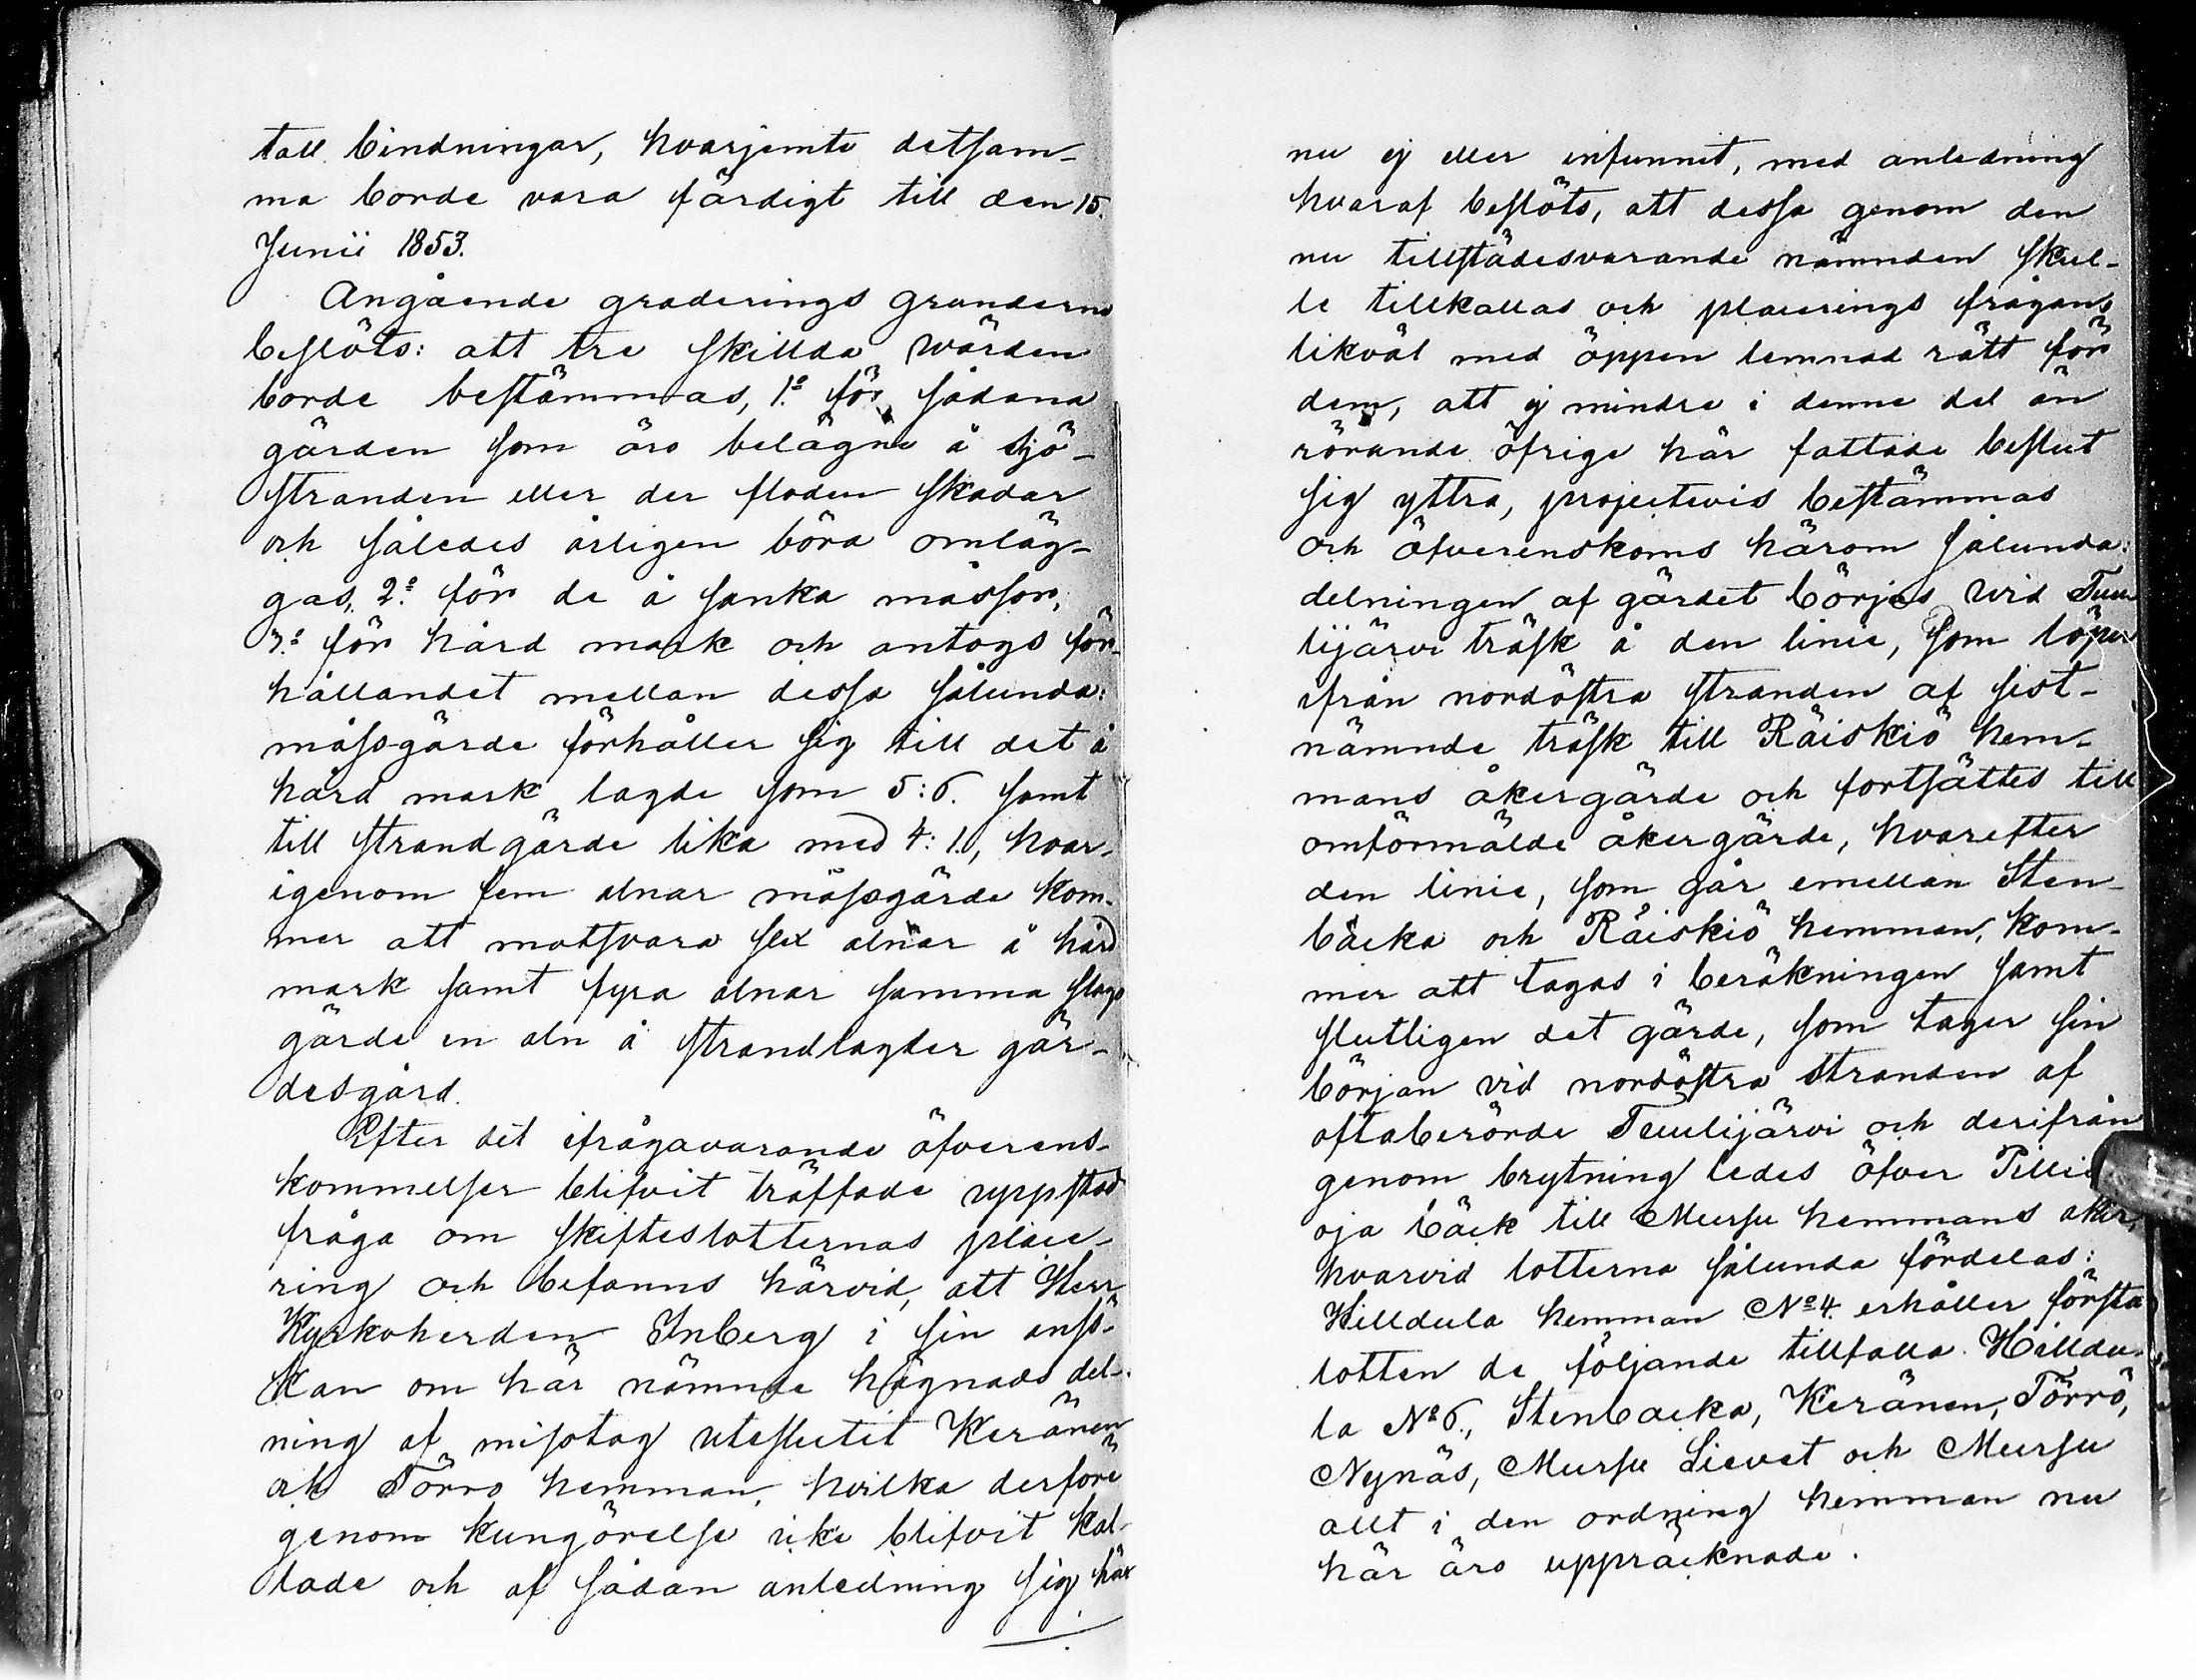 tall bindningar, hvarjemte detsam-
ma borde vara färdigt till den 15.
Junii 1853.
Angående graderings grunderna
beslöts: att tre skillda wärden
borde bestämmas, 1:o för sådana
gärden som äro belägne å sjö-
stranden eller der floden skadar
och således årligen böra omläg-
gas, 2:o för de å sanka mässor,
3:o för hård mark och antogs för-
hållandet mellan dessa sålunda:
måssgärde förhåller sig till det å
hård mark lagde som 5:6. samt
till strandgärde lika med 4:1., hvar-
igenom fem alnar måssgärde kom-
mer att motsvara sex alnar å hård
mark samt fyra alnar samma slags
gärde en aln å strandlagder gär-
desgård.
Efter det ifrågavarande öfverens-
kommelser blifvit träffade uppstod
fråga om skifteslotternas place-
ring och befanns härvid, att Herr
Kyrkoherden Enberg i sin ansö-
kan om här nämnde hägnads del-
ning af misstag uteslutit Keränen
och Törro hemman, hvilka derföre
genom kungörelse icke blifvit kal-
lade och af sådan anledning sig här
nu ej eller infunnit, med anledning
hvaraf beslöts, att dessa genom den
nu tillstädesvarande nämnden skul-
le tillkallas och placerings frågan,
likväl med öppen lemnad rätt för
dem, att ej mindre i denne del än
rörande öfrige här fattade beslut
sig yttra, projectevis bestämmas
och öfverenskoms härom sålunda:
delningen af gärdet börjas wid Tuu-
lijärvi träsk å den linie, som löper
ifrån nordöstra stranden af sist-
nämnde träsk till Räiskiö hem-
mans åkergärde och fortsättes till
omförmälde åkergärde, hvarefter
den linie, som går emellan Sten-
backa och Räiskiö hemman, kom-
mer att tagas i beräkningen samt
slutligen det gärde, som tager sin
början vid nordöstra stranden af
oftaberörde Tuulijärvi och derifrån
genom brytning ledes öfver
oja bäck till Mursu hemmans åker,
hvarvid lotterna sålunda fördelas:
Hilldula hemman No 4. erhåller första
lotten de följande tillfalla Hilldu-
la No 6., Stenbacka, Keränen, Törrö,
Nynäs, Mursu Lievet och Mursu
allt i den ordning hemman nu
här äro uppräcknade.